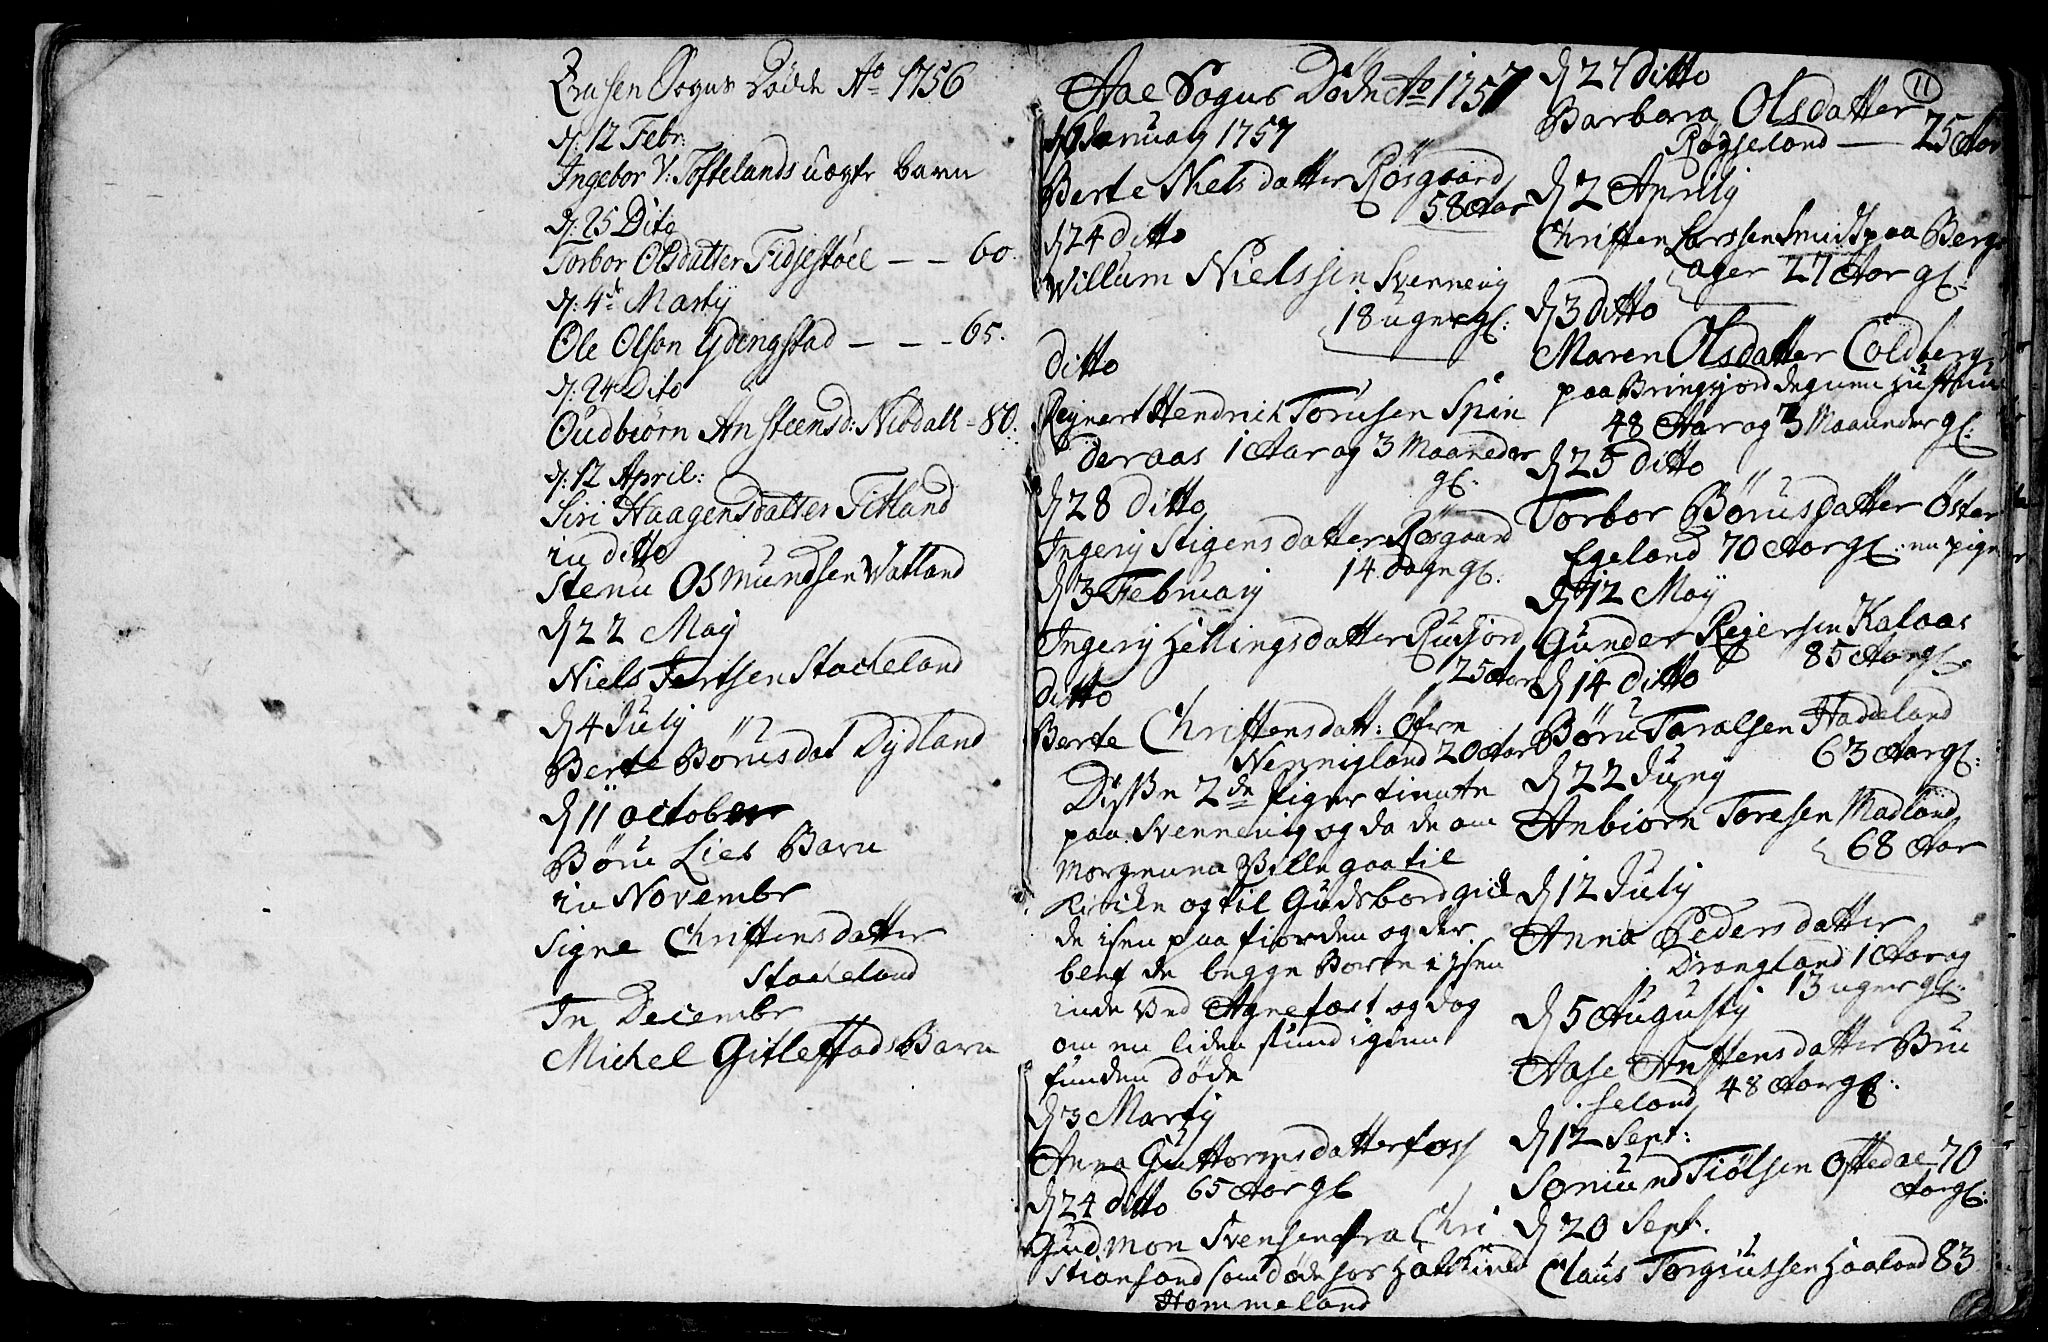 Sogns Døde Ao 1756
d: 12 Febr:
Ingebor V: Toftelands uægte barn
d: 25 Dito
Torbor Olsdatter Fidjestöel - - 60.
d: 4de Martÿ
Ole Olson Ydengstad - - - 65.
d: 24 Dito
Gudbiørn Ansteensd: Nibdall - 80.
d: 12 April:
Siri Haagensdatter Fitland
in ditto
Stenu Osmundsen Watland
d 22 Maÿ
Niels Jertsen Stackeland
d 4 Julÿ
Berte Börusdat Dydland
d 11 october
Böru Lies Barn
in Novembr
Signe Christensdatter
Stackeland
In Decembr
Michel Gitlestads Barn
Aae Sogns Døde Ao 1757
Januarÿ 1757
Berte Nielsdatter Rösgaard
58 Aar
d 24 ditto
Willum Nielssen Svennevig
18 uger gl:
ditto
Rejnert Hendrich Torusen Spin
deraas 1 Aar og 3 Maaneder
gl:
d 28 ditto
Ingerj Stigensdatter Rösgaard
14 dage gl:
d 3 Februarÿ
Ingerj Hellingsdatter Rusfjord
25 Aar
ditto
Berte Christensdatt: Öfern
Nennigland 20 Aar
Disse 2de Piger tiente
paa Svennevig og da de om
Morgenen Ville gaa til
Kircke og til Guds bord gick
de isen paa fiorden og der
blef de begge Borte i Jsen
inde Ved Agnefæst og dog
om en liden stund igien
funden døde
d 3 Martÿ
Anna Guttormsdatter foss
65 Aar gl
d 24 ditto
Gudmon Svensen fra Chri
stiansand som døde hos
Hommeland
11
d 27 ditto
Barbara Olsdatter
Røÿseland — 25 Aar
d 2 Aprilÿ
Christen Larssen Smidt paa Bergs
ager 27 Aar gl:
d 3 ditto
Maren Olsdatter Coldberg
paa Bringsjord degnens Hustrue
48 Aar og 3 Maaneder gl:
d 25 ditto
Torbor Börusdatter Öster
Egeland 70 Aar gl: en pige
d 12 Maÿ
Gunder Rejersen Kalaas
85 Aar gl:
d 14 ditto
Böru Taralsen Haddeland
63 Aar gl:
d 22 Junÿ
Anbiörn Toresen Madland
68 Aar
d 12 Julÿ
Anna Pedersdatter
Drangland 1 Aar og
13 uger gl:
d 5 Augustÿ
Aase Anstensdatter Bru
seland 48 Aar gl:
d 12 Sept:
Somund Tiölsen Oftedae 70
Aar gl:
d 20 Sept.
Claus Torgiussen Haaland 83